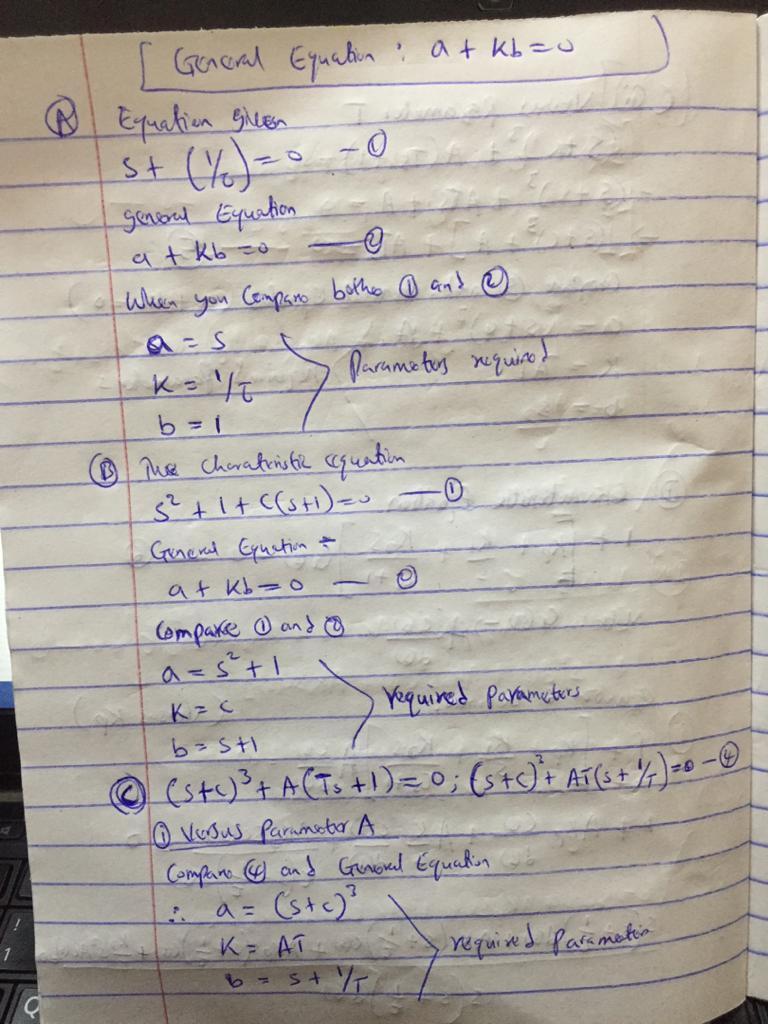 General Equation : a + kb = 0
Ⓐ Equation given
s + (1/τ) = 0 — ①
general Equation
a + kb = 0 — ②
When you Compare bothe ① and ②
a = s
K = 1/τ
b = 1
Parameters required
Ⓑ The charatristic equation
s² + 1 + c(s+1) = 0 — ①
General Equation =
a + kb = 0 — ②
Compare ① and ②
a = s² + 1
K = c
b = s+1
required parameters
Ⓒ (s+c)³ + A(Ts + 1) = 0 ; (s+c)³ + AT(s + 1/T) = 0 — ④
① Versus parameter A
Compare ④ and General Equation
∴ a = (s+c)³
K = AT
b = s + 1/T
required Parameters